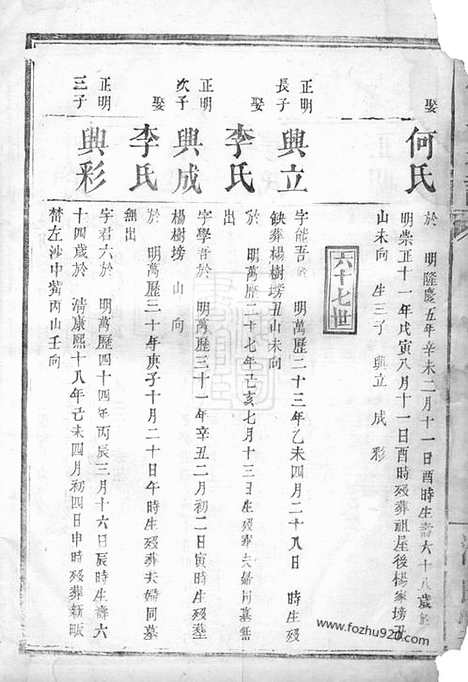 娶
何氏
於 明隆慶五年辛未二月十一日酉時生壽六十八歲於
明崇正十一年戊寅八月十一日酉時歿葬祖屋後楊家塝丑
山未向 生三子 興立 成 彩
六十七世
正明
長子
興立
字能吾於 明萬歷二十三年乙未四月二十八日 時生歿
缺葬楊樹塝丑山未向
娶
李氏
於 明萬歷二十七年己亥七月十三日 時生歿葬夫婦同墓無
出
正明
次子
興成
字學吾於 明萬歷三十一年辛丑二月初二日寅時生歿葬
楊樹塝 山 向
娶
李氏
於 明萬歷二十年庚子十月二十日午時生歿葬夫婦同墓
無出
正明
三子
興彩
字君六於 明萬歷四十四年丙辰三月十六日辰時生壽六
十四歲於 清康熙十八年己未四月初四日申時歿葬新畈
梺左沙中嘴丙山壬向
www.fozhu920.com